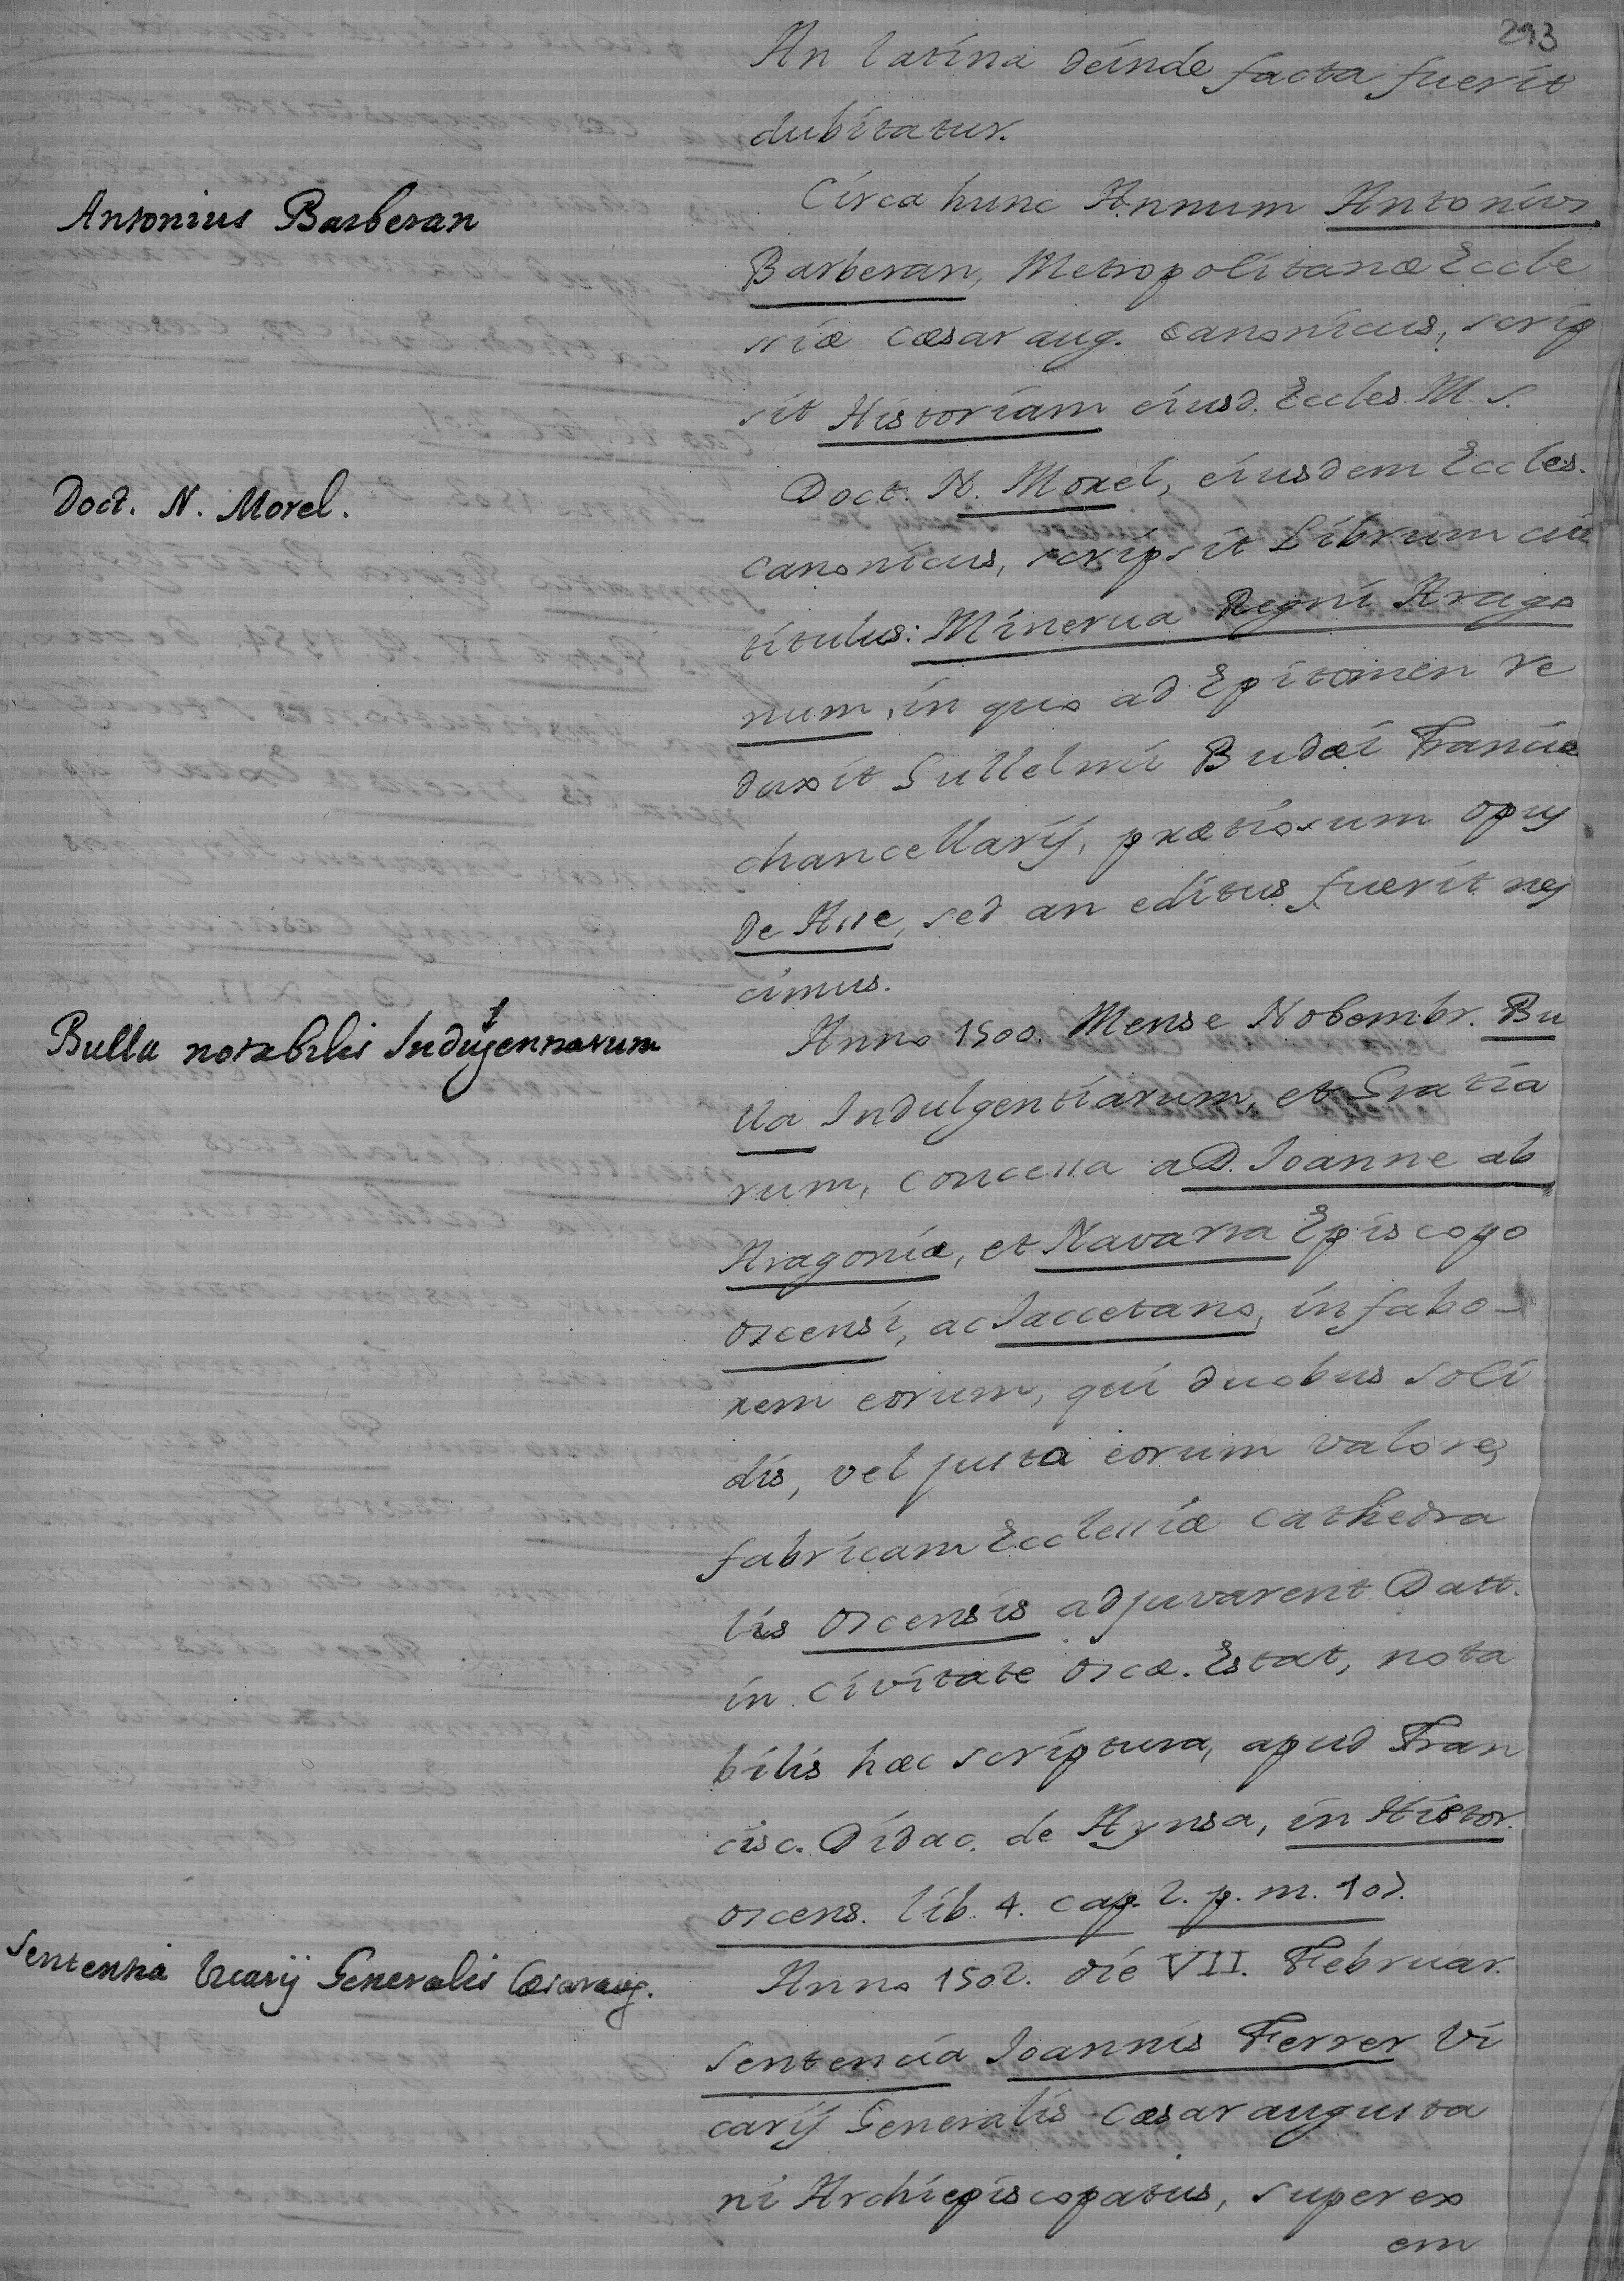 293
An latina deinde facta fuerit
dubitatur.
Antonius Barberan
Circa hunc Annum Antonius
Barberan, Metropolitanæ Eccle
siæ Cæsaraug. Canonicus, scrip
sit Historiam eiusd. Eccles. M. S.
Doct. N. Morel.
Doct. N. Morel, eiusdem Eccles.
canonicus, scripsit Librum cui
titulus: Minerua Regni Arago
num, in quo ad Epitomen re
duxit Gullelmi Budæi Franciæ
chancellarij, prætiosum opus
de Asse, sed an editus fuerit nes
cimus.
Bulla notabilis Indulgentiarum
Anno 1500. Mense Nobembr. Bu
lla Indulgentiarum, et Gratia
rum, concessa a D. Ioanne ab
Aragonia, et Navarra Episcopo
oscensi, ac Iaccetano, in fabo-
rem eorum, qui duobus soli
dis, vel justa eorum valore,
fabricam Ecclessiæ Cathedra
lis oscensis adjuvarent Datt.
in Civitate oscæ. Estat, nota
bilis hæc scriptura, apud Fran
cisc. Didac. de Aynsa, in Histor.
oscens. lib. 4. cap. 2. p. m. 507.
Sententia Vicarij Generalis Cæsaraug.
Anno 1502. die VII. Februar.
Sentencia Ioannis Ferrer Vi
carij Generalis Cæsaraugusta
ni Archiepiscopatus, super ex
em